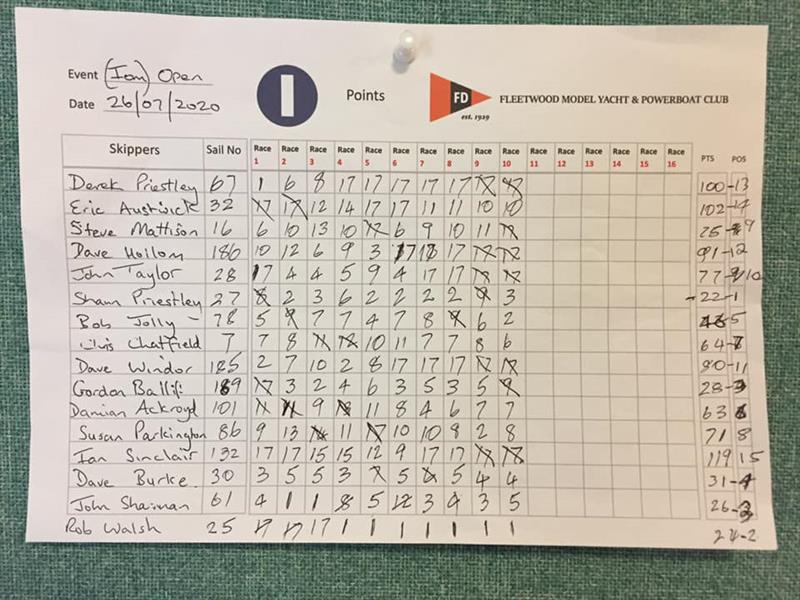 Event (Iom) Open
Date 26/07/2020
Points
FD
est. 1929
FLEETWOOD MODEL YACHT & POWERBOAT CLUB
Skippers Sail No Race 1 Race 2 Race 3 Race 4 Race 5 Race 6 Race 7 Race 8 Race 9 Race 10 Race 11 Race 12 Race 13 Race 14 Race 15 Race 16 PTS POS
Derek Priestley 67 1 6 8 17 17 17 17 17 17 17 100-13
Eric Austwick 32 17 17 12 14 17 17 11 11 10 10 102-14
Steve Mattison 16 6 10 13 10 17 6 9 10 11 9
Dave Hollom 186 10 12 6 9 3 17 17 17 17 91-12
John Taylor 28 17 4 4 5 9 4 17 17 17 17 77 10
Shaun Priestley 27 8 2 3 6 2 2 2 2 9 3 -22-1
Bob Jolly - 78 5 9 7 7 4 7 8 9 6 2 5
Chris Chatfield 7 7 8 10 11 7 7 8 6 64-7
Dave Windor 185 2 7 10 2 8 17 17 17 17 17 80-11
Gordon 189 17 3 2 4 6 3 5 3 5 28-3
Damian Ackroyd 101 11 9 11 8 4 6 7 7 63 6
Susan Parkington 86 9 13 11 17 10 10 8 2 8 71 8
Ian Sinclair 132 17 17 15 15 12 9 17 17 119 15
Dave Burke 30 3 5 5 3 5 5 4 4 31-4
John Shaiman 61 4 1 1 8 5 12 3 4 3 5 26-3
Rob Walsh 25 17 17 17 1 1 1 1 1 1 1 24-2